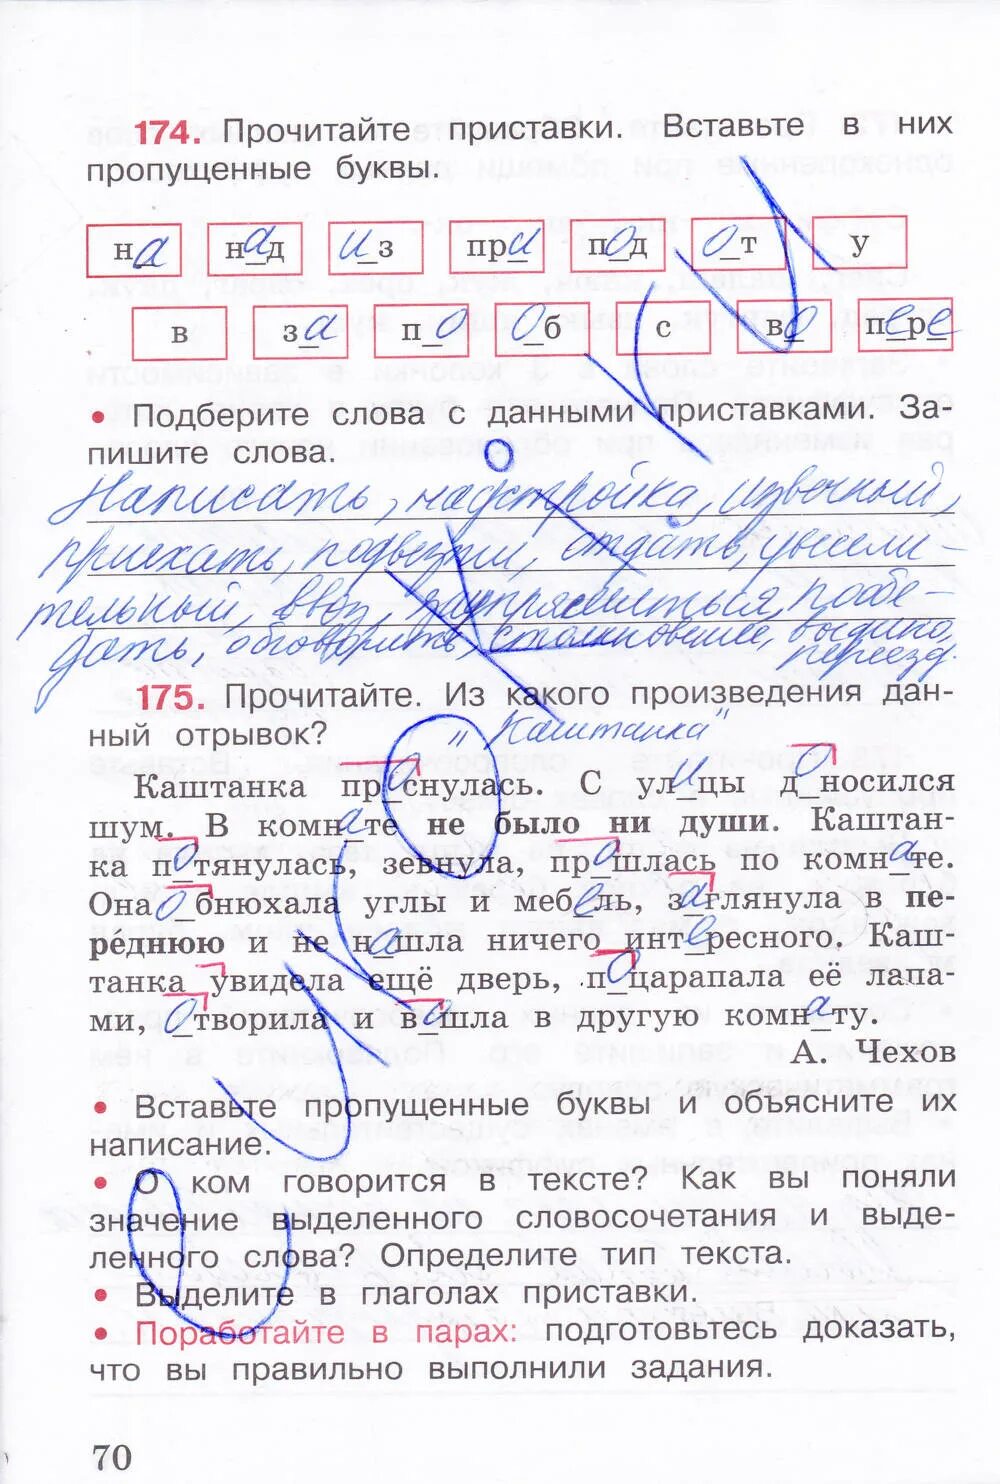 174. Прочитайте приставки. Вставьте в них
пропущенные буквы.
на над из при под от у
в за по об с во пере
• Подберите слова с данными приставками. За-
пишите слова.
Написать, надстройка, извечный,
приехать, подвезти, отдать, увесели-
тельный, ввоз, побе-
дать, обговорить, выдача,
переезд.
175. Прочитайте. Из какого произведения дан-
ный отрывок? "Каштанка"
Каштанка проснулась. С улицы доносился
шум. В комнате не было ни души. Каштан-
ка потянулась, зевнула, прошлась по комнате.
Она обнюхала углы и мебель, заглянула в пе-
реднюю и не нашла ничего интересного. Каш-
танка увидела ещё дверь, поцарапала её лапа-
ми, отворила и вошла в другую комнату.
А. Чехов
• Вставьте пропущенные буквы и объясните их
написание.
• О ком говорится в тексте? Как вы поняли
значение выделенного словосочетания и выде-
ленного слова? Определите тип текста.
• Выделите в глаголах приставки.
• Поработайте в парах: подготовьтесь доказать,
что вы правильно выполнили задания.
70